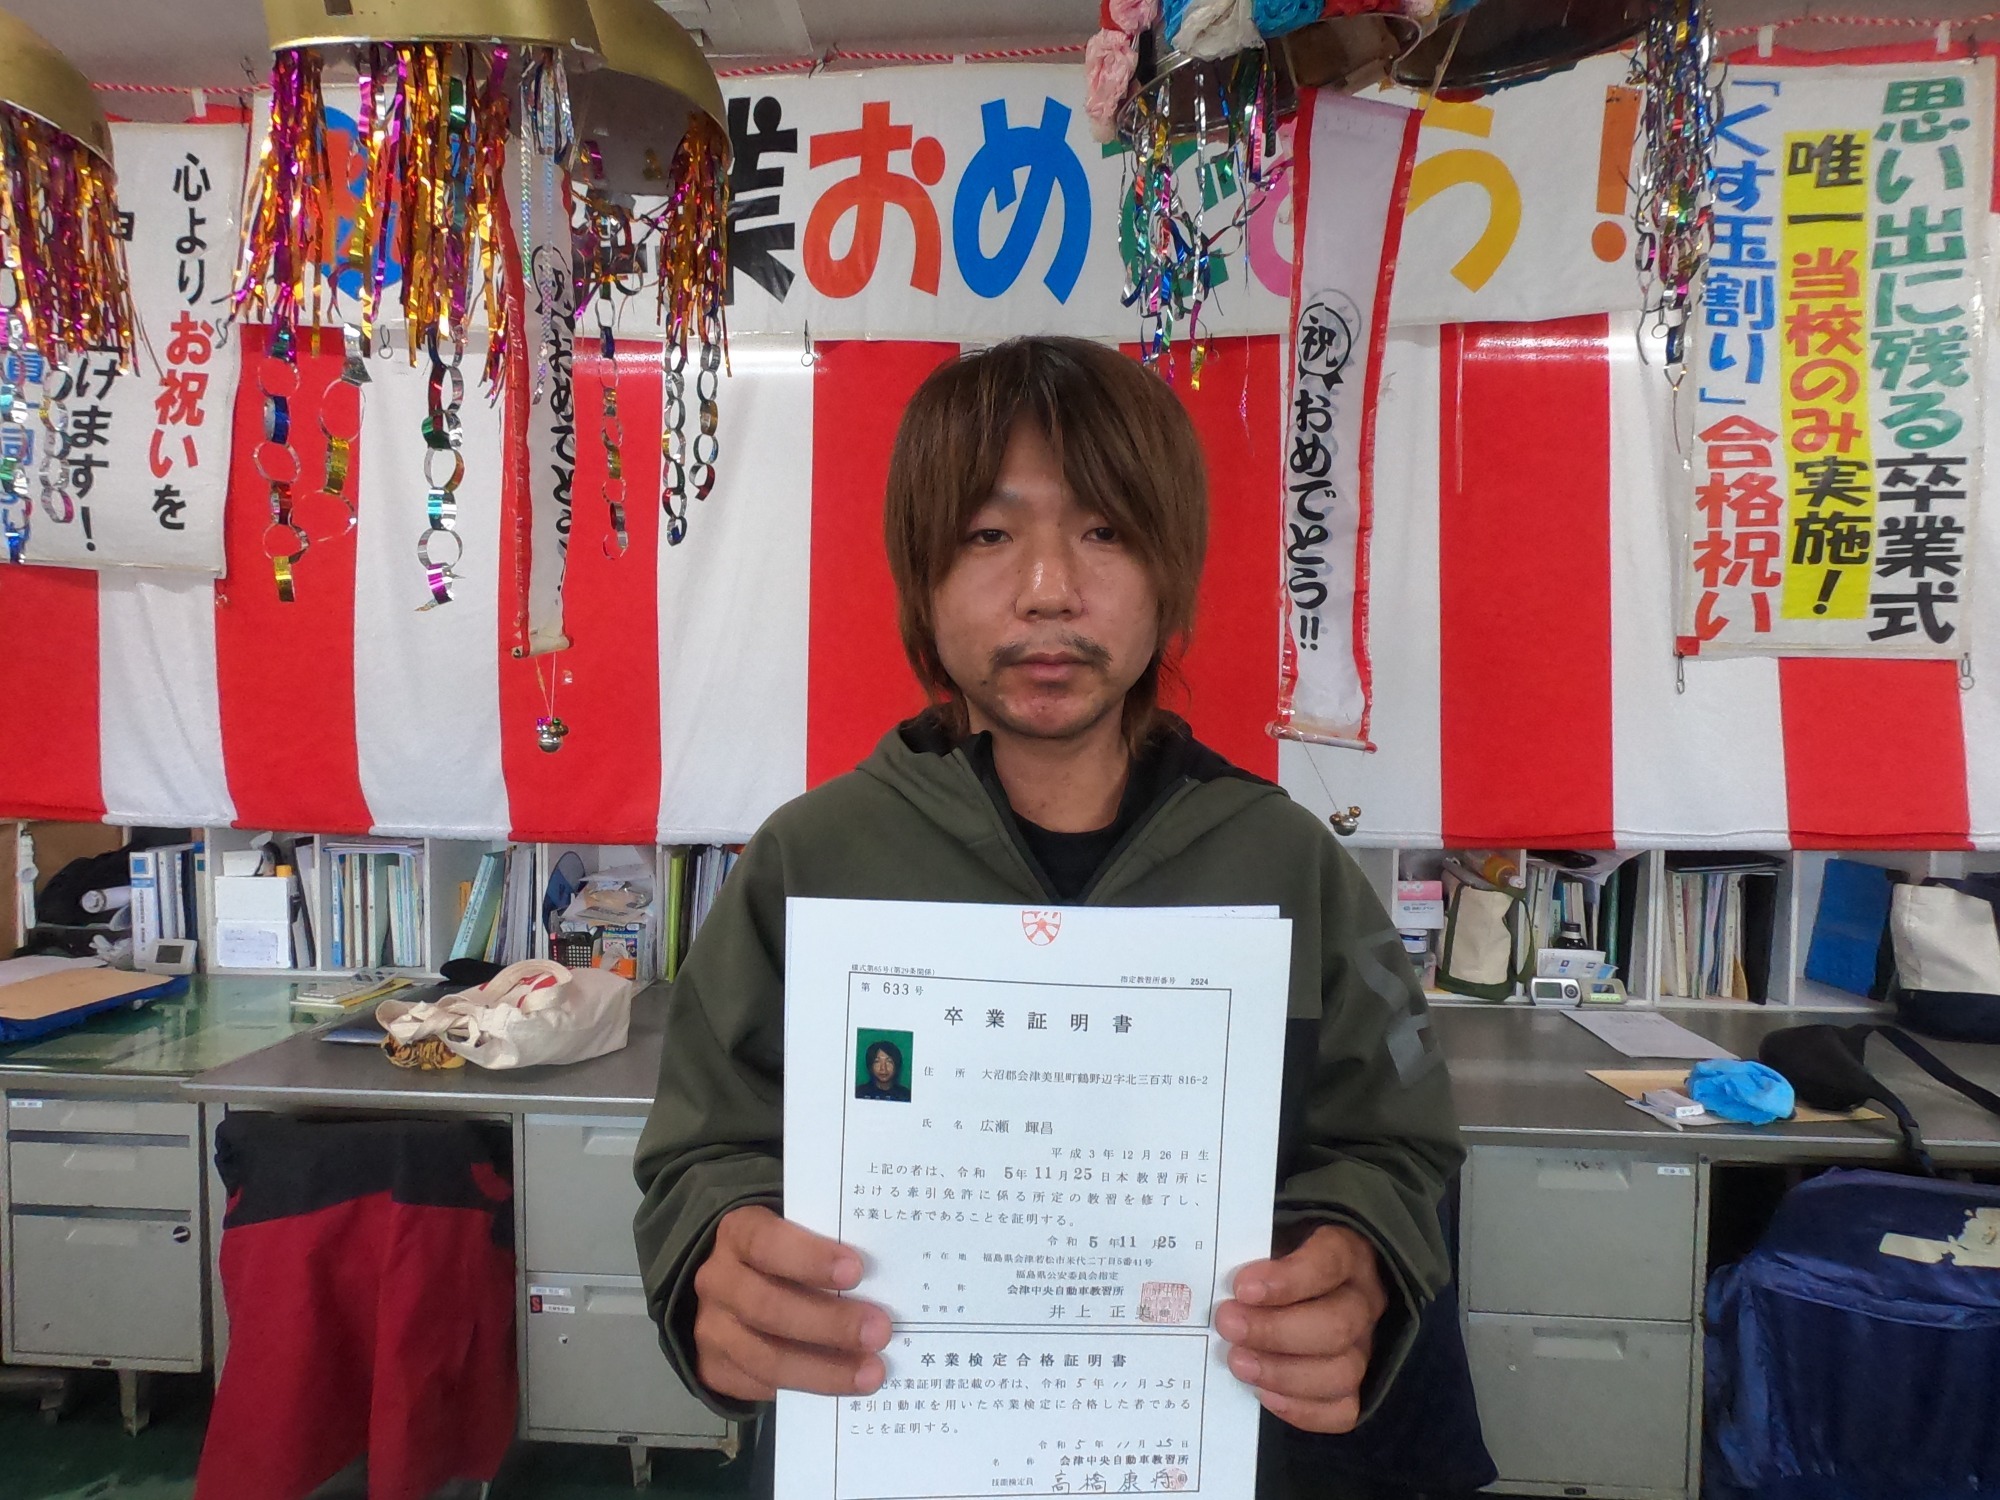 業おめでとう！
心より
お祝いを
けます！
祝
おめでとう!!
おめでとう
思い出に残る卒業式
唯一当校のみ実施！
「くす玉割り」合格祝い
様式第65号(第29条関係)
指定教習所番号 2524
第 633 号
卒業証明書
住所 大沼郡会津美里町鶴野辺字北三百苅 816-2
氏名 広瀬 輝昌
平成3年12月26日生
上記の者は、令和 5年11月25日本教習所に
おける牽引免許に係る所定の教習を修了し、
卒業した者であることを証明する。
令和 5 年11 月25 日
所在地 福島県会津若松市米代二丁目5番41号
福島県公安委員会指定
名称 会津中央自動車教習所
管理者 井上 正美
号
卒業検定合格証明書
卒業証明書記載の者は、令和5年11月25日
牽引自動車を用いた卒業検定に合格した者である
ことを証明する。
令和5年11月25日
名称 会津中央自動車教習所
技能検定員 高橋康